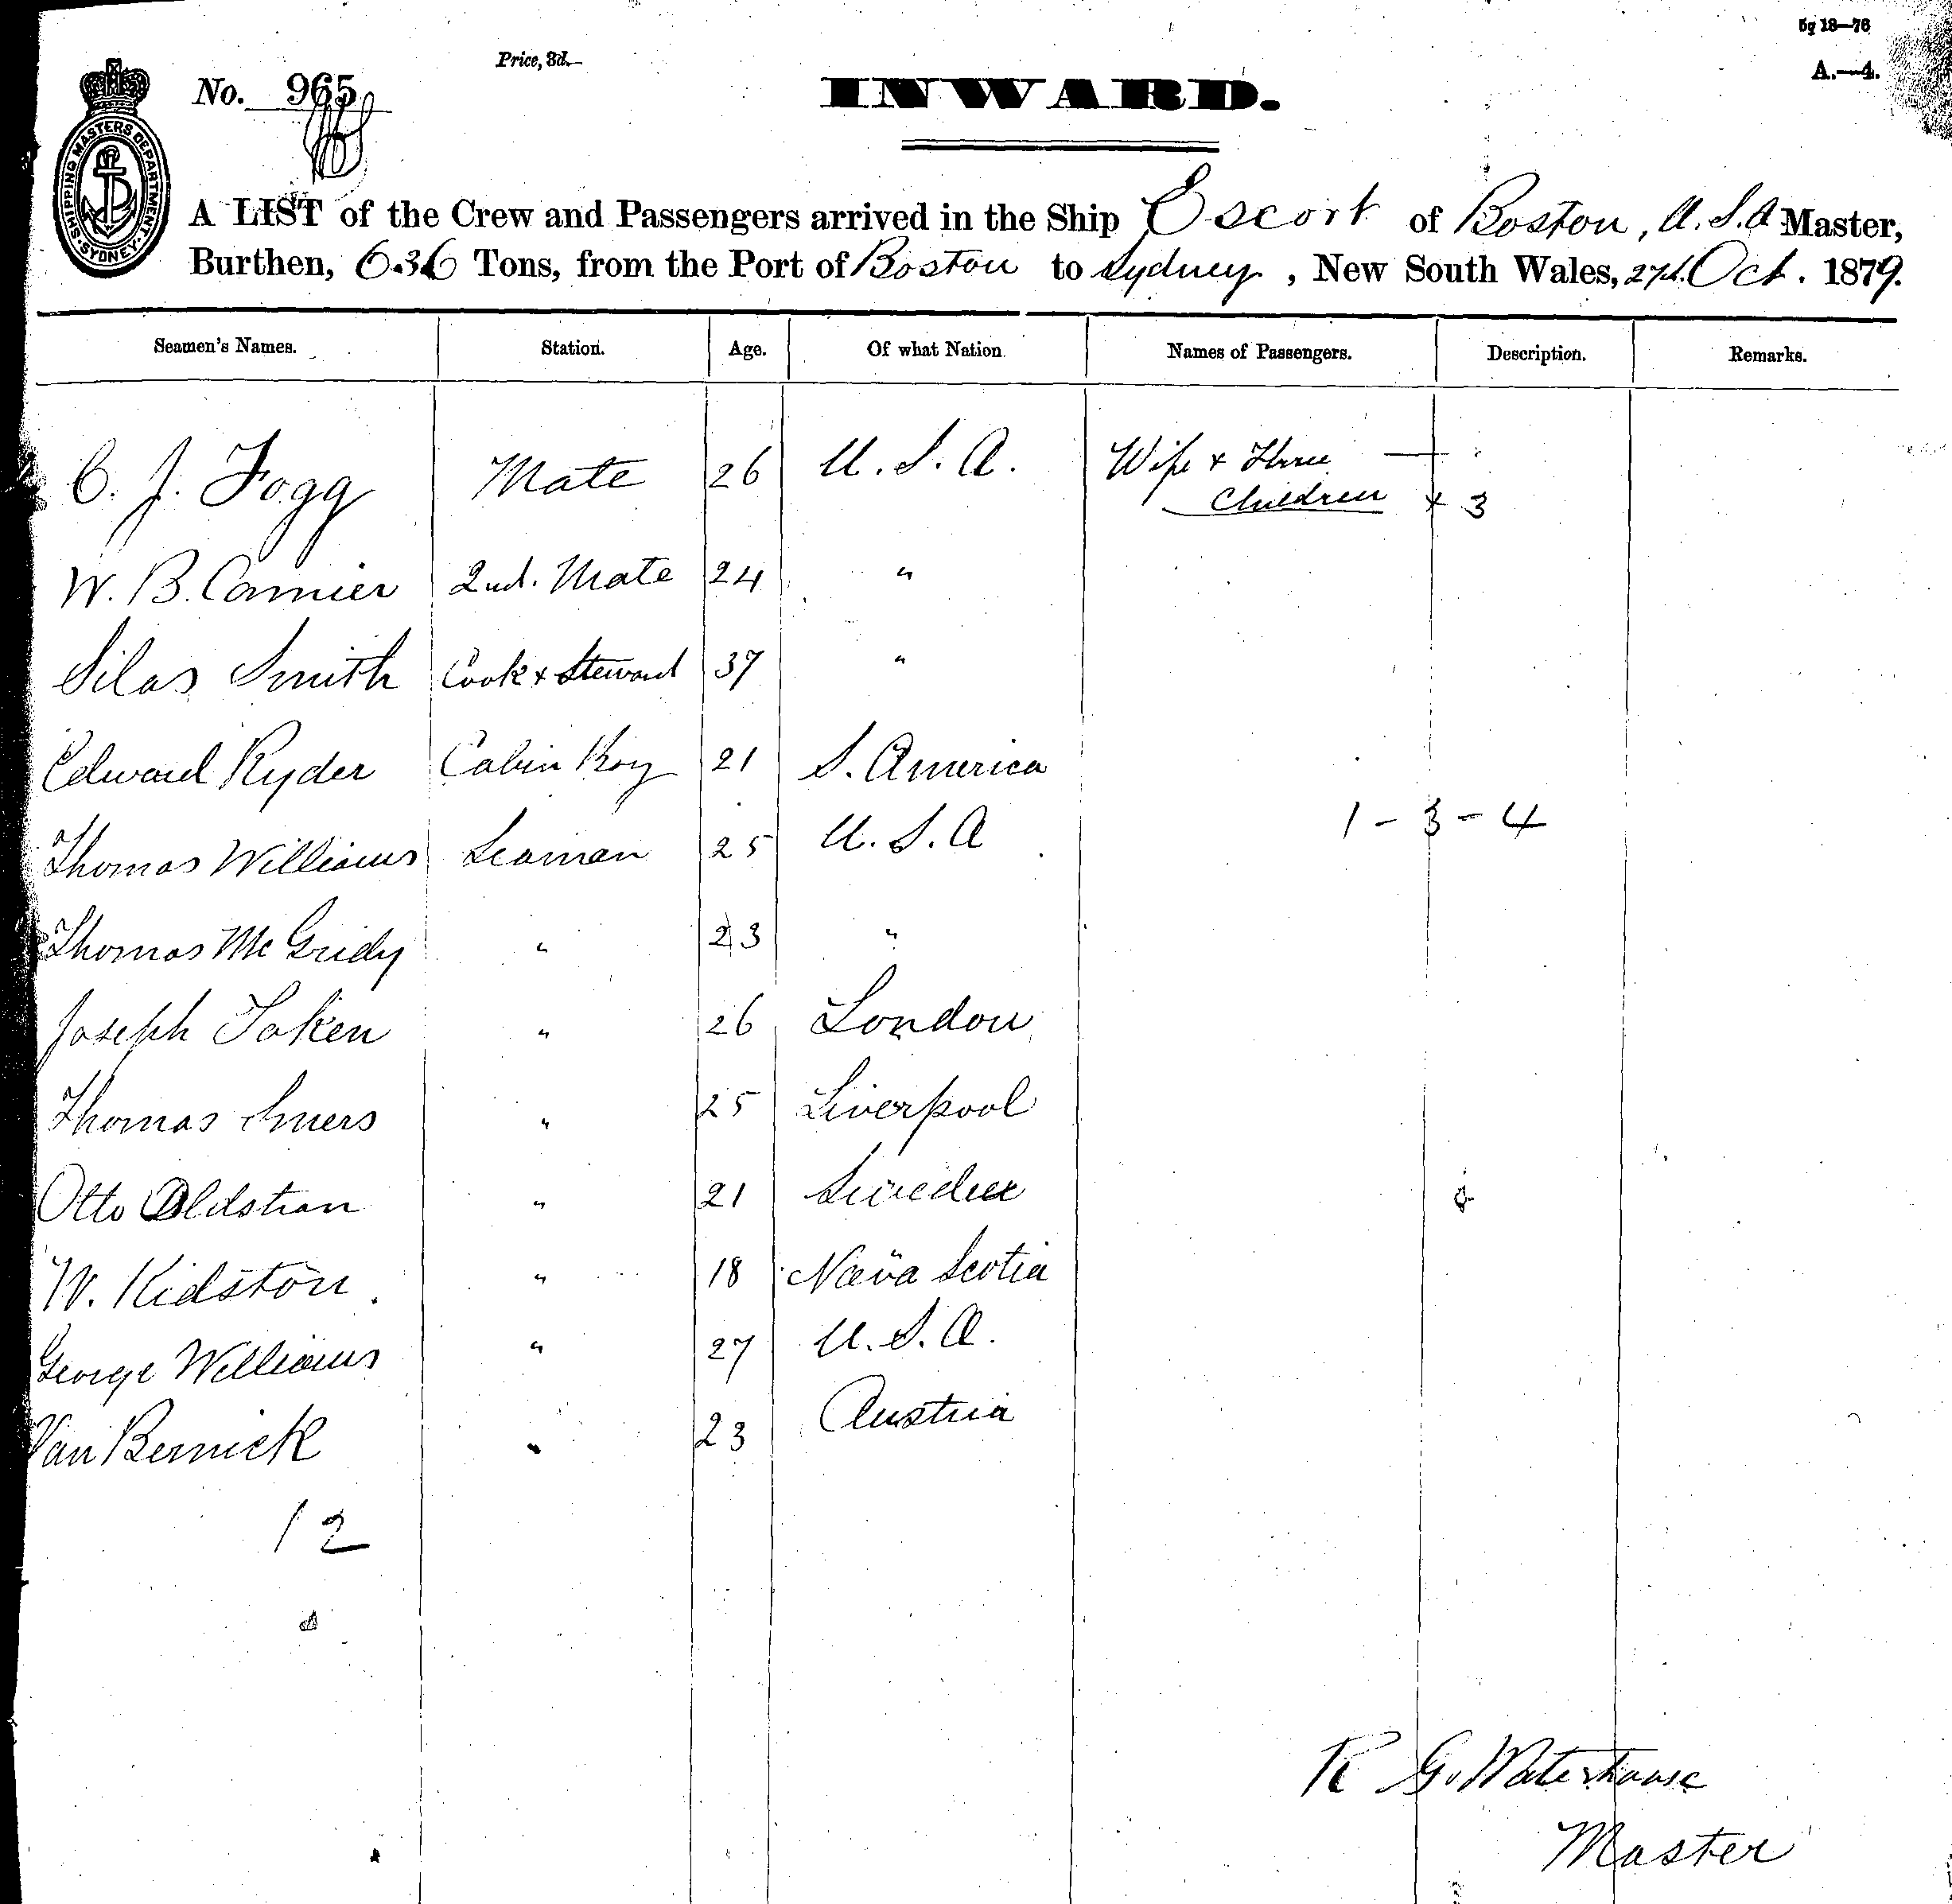 5g 18—76
Price, 3d.
No. 965
INWARD.
A.—4.
SHIPPING MASTERS DEPARTMENT SYDNEY
A LIST of the Crew and Passengers arrived in the Ship Escort of Boston, U.S.A Master,
Burthen, 636 Tons, from the Port of Boston to Sydney, New South Wales, 27th. Oct. 1879.
Seamen's Names. Station. Age. Of what Nation Names of Passengers. Description. Remarks.
C. J. Fogg Mate 26 U.S.A. Wife + Three
Children + 3
W. B. 2nd. Mate 24 "
Silas Smith Cook + Steward 37 "
Edward Ryder Cabin Boy 21 S. America
Thomas Williams Seaman 25 U.S.A 1 - 3 - 4
Thomas " 23 "
Joseph " 26 London
Thomas " 25 Liverpool
Otto " 21 Sweden
W. Kidston. " 18 Nova Scotia
George Williams " 27 U.S.A.
Van Bernick " 23 Austria
12
R G. Waterhouse
Master